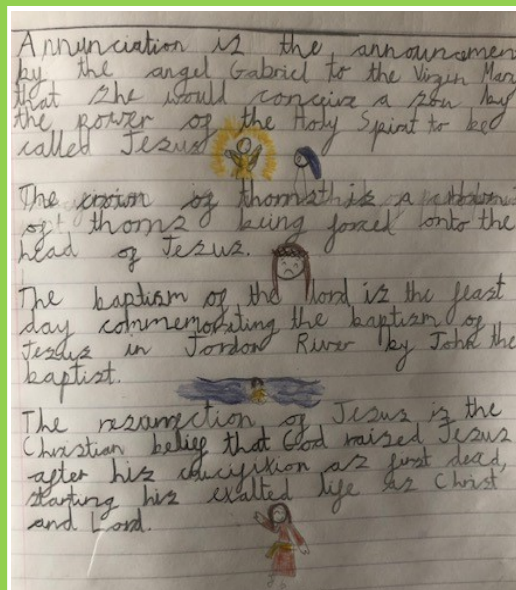 Annunciation is the announcemen
by the angel Gabriel to the Virgin Mar
that she would conceive a son by
the power of the Holy Spirit to be
called Jesus
The crown of thorns is a
of thorns being forced onto the
head of Jesus.
The baptism of the lord is the feast
day commemorating the baptism of
Jesus in Jordon River by John the
baptist.
The resurrection of Jesus is the
Christian belief that God raised Jesus
after his crucifixion as first dead,
starting his exalted life as Christ
and Lord.